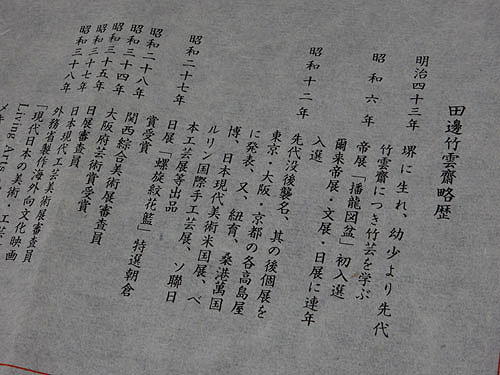 田邊竹雲齋略歴
明治四十三年 堺に生れ、幼少より先代
竹雲齋につき竹芸を学ぶ
昭和六年 帝展「播龍図盆」初入選
爾来帝展・文展・日展に連年
入選
昭和十二年 先代没後襲名、其の後個展を
東京・大阪・京都の各高島屋
に発表、又、紐育、桑港萬国
博、日本現代美術米国展、ベ
ルリン国際手工芸展、ソ聯日
本工芸展等出品
昭和二十七年 日展「螺旋紋花籃」特選朝倉
賞受賞
昭和二十八年 関西綜合美術展審査員
昭和三十四年 大阪府芸術賞受賞
昭和三十五年 日展審査員
昭和三十七年 日本現代工芸美術展審査員
昭和三十八年 外務省製作海外向文化映画
「現代日本の美術・工芸
Living Arts
メキ